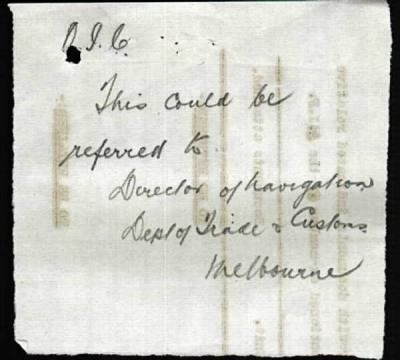 O.I.C
This could be
referred to
Director of Navigation
Dept of Trade & Customs
Melbourne